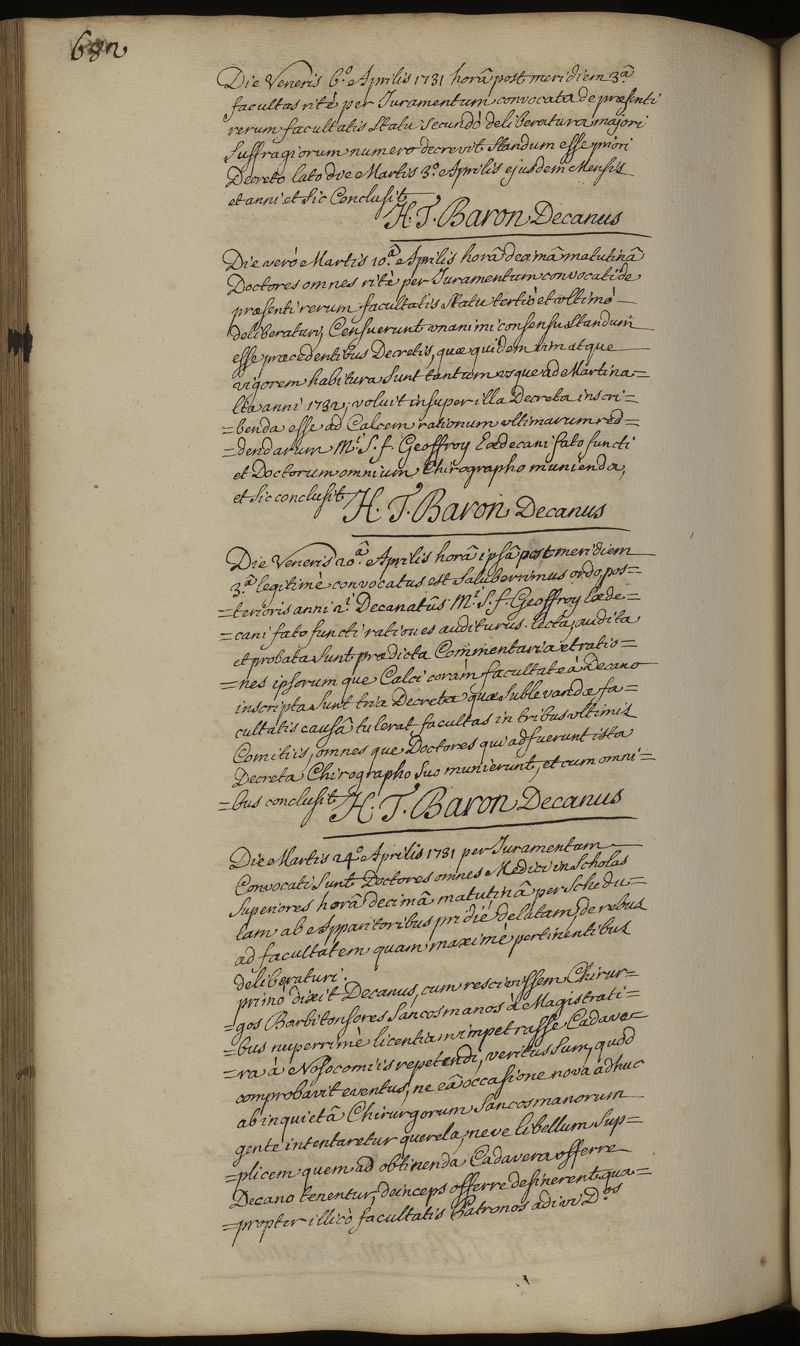 682
Die Veneris 6.º Aprilis 1731 horâ post meridiem 3.ª
facultas ritè per Juramentum convocata de præsenti
rerum facultatis statu secundò deliberatura majori
suffragiorum numero decrevit standum esse priori
Decreto lato die Martis 3.º Aprilis ejusdem Mensis
et anni et sic Conclusit
H. T. Baron Decanus
Die verò Martis 10.ª Aprilis horâ decimâ matutinâ
Doctores omnes ritè per Juramentum convocati de
præsenti rerum facultatis statu tertiò et ultimò
deliberaturi, Censuerunt unanimi consensu standum
esse præcedentibus Decretis, quæ quidem vim atque
vigorem habitura sunt tantum usque ad Martina=
lia anni 1732; voluit insuper illa Decreta inscri=
=benda esse ad Calcem rationum ultimarum red=
=dendarum Mri S. f. Geoffroy Exdecani fato functi
et Doctorum omnium Chirographo munienda,
et sic conclusit
H. T. Baron Decanus
Die Veneris 20.ª Aprilis horâ ipsâ post meridiem
3.ª legitimè convocatus est saluberrimus ordo pos=
=terioris anni 2i Decanatûs Mri S. f. Geoffroy Exde=
=cani fato functi rationes auditurus. lecta, audita
et probata sunt prædicta Commentaria et ratio=
=nes ipsorum que Calci coràm facultate à Decano
inscripta sunt tria Decreta quæ sublevandæ fa=
cultatis causâ tulerat facultas in tribus ultimis
Comitiis, omnes que Doctores qui adfuerunt ista
Decreta Chirographo suo munierunt, et cum omni=
=bus conclusit
H. T. Baron Decanus
Die Martis 24.º Aprilis 1731 per Juramentum
Convocati sunt Doctores omnes Medici in Scholas
superiores horâ decimâ matutinâ per schedu=
lam ab Apparitoribus pridiè delatam, de rebus
ad facultatem quam maximè pertinentibus
deliberaturi.
primò dixit Decanus, cum rescivissem Chirur=
=gos Barbitonsores Sancosmanos à Magistrati=
=bus nuperrimè licentiam impetrasse Cadave=
=ra à Nosocomiis repetendi, veritus sum, quod
comprobavit eventus, ne eâ occasione nova adhuc
ab inquietâ Chirurgorum Sancosmanorum
gente intentaretur querela, neve libellum sup=
=plicem quem ad obtinenda Cadavera offerre
Decano tenentur, deinceps offerre desinerent, qua=
=propter illicò facultatis Patronos adivi D.os